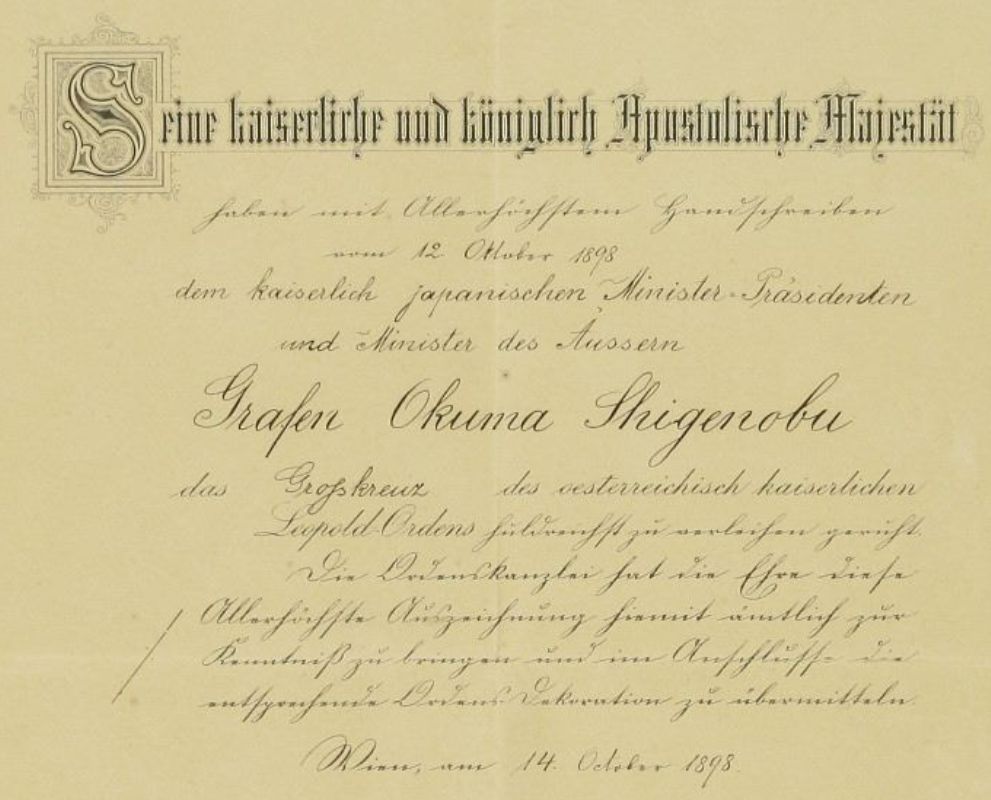 Seine kaiserliche und königlich Apostolische Majestät
haben mit Allerhöchstem Handschreiben
vom 12. Oktober 1898
dem kaiserlich japanischen Minister-Präsidenten
und Minister des Äussern
Grafen Okuma Shigenobu
das Großkreuz des oesterreichisch kaiserlichen
Leopold-Ordens huldreichst zu verleihen geruht.
Die Ordenskanzlei hat die Ehre diese
Allerhöchste Auszeichnung hiemit ämtlich zur
Kenntniß zu bringen und im Anschlusse die
entsprechende Ordens-Dekoration zu übermitteln.
Wien, am 14. October 1898.